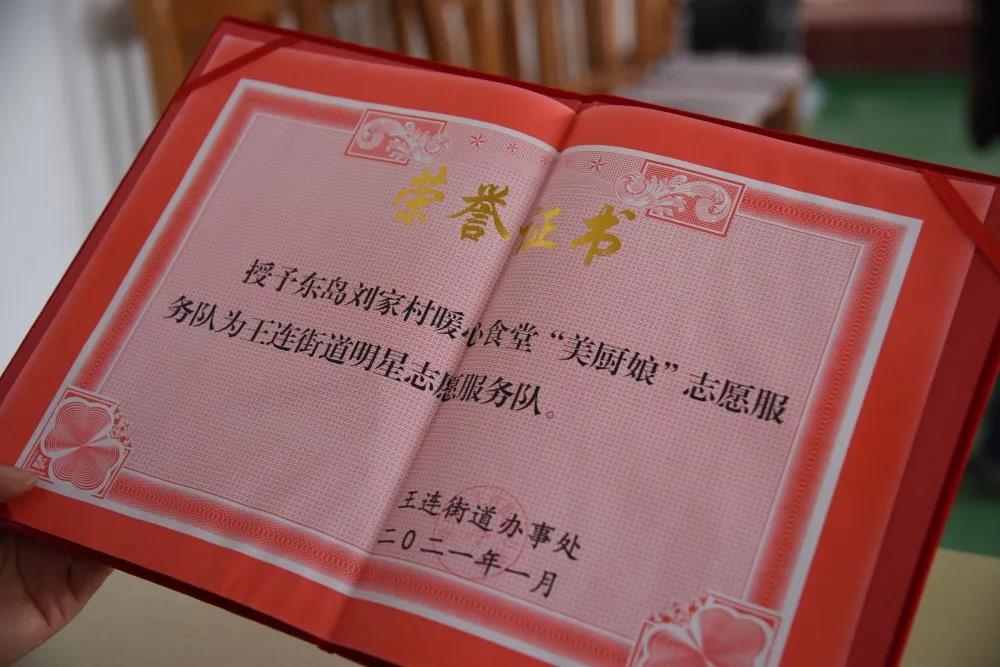 荣誉证书
授予东岛刘家村暖心食堂“美厨娘”志愿服
务队为王连街道明星志愿服务队。
王连街道办事处
二〇二一年一月